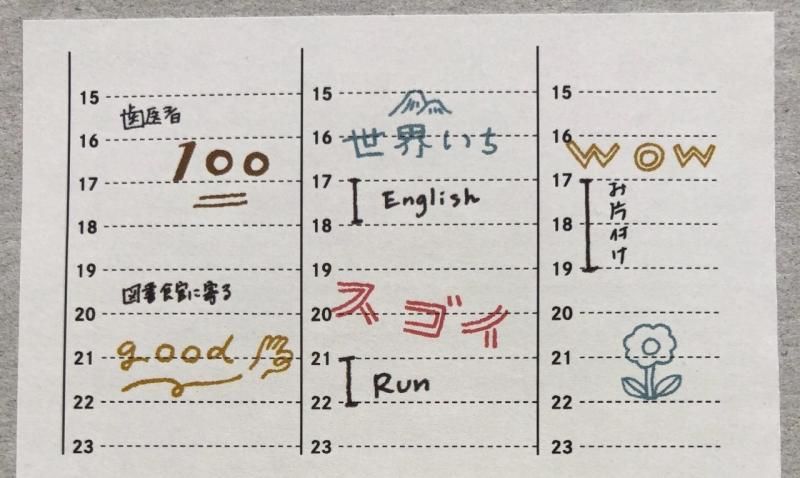 15
歯医者
16
100
17
18
19
図書館に寄る
20
good
21
22
23
15
16
世界いち
17
English
18
19
20
スゴイ
21
Run
22
23
15
16
WOW
17
お片付け
18
19
20
21
22
23